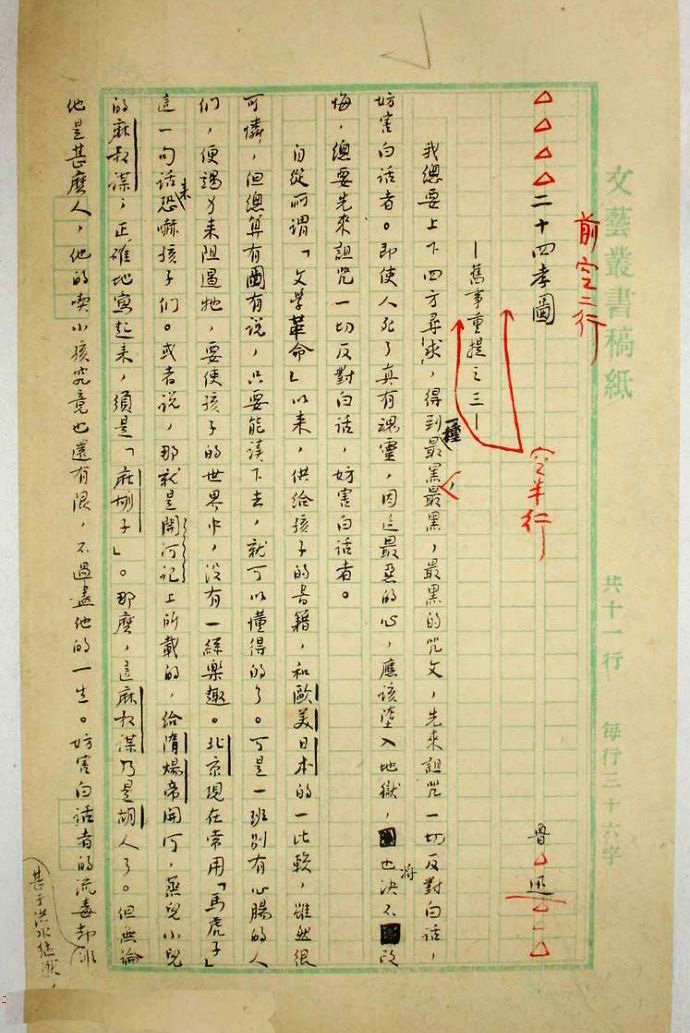 文藝叢書稿紙
共十一行　每行三十六字
前空二行
△△△△二十四孝圖　魯△迅△△△
空半行
—舊事重提之三—
我總要上下四方尋求，得到一種最黑最黑，最黑的咒文，先來詛咒一切反對白話，
妨害白話者。即使人死了真有魂靈，因這最惡的心，應該墮入地獄，也將決不改
悔，總要先來詛咒一切反對白話，妨害白話者。
自從所謂「文學革命」以來，供給孩子的書籍，和歐美日本的一比較，雖然很
可憐，但總算有圖有說，只要能讀下去，就可以懂得的了。可是一班別有心腸的人
們，便竭力來阻遏牠，要使孩子的世界中，沒有一絲樂趣。北京現在常用「馬虎子」
這一句話來恐嚇孩子們。或者說，那就是開河記上所載的，給隋煬帝開河，蒸死小兒
的麻叔謀；正確地寫起來，須是「麻胡子」。那麼，這麻叔謀乃是胡人了。但無論
他是甚麼人，他的喫小孩究竟也還有限，不過盡他的一生。妨害白話者的流毒卻
甚于洪水猛獸，